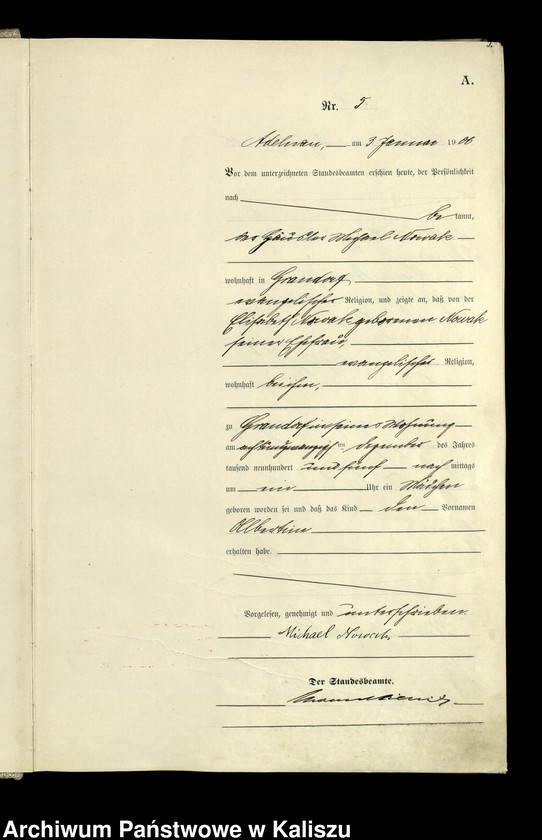 A.
Nr. 5.
Adelnau, am 3 Januar 1906
Vor dem unterzeichneten Standesbeamten erschien heute, der Persönlichkeit
nach
be kannt,
der Häusler Michael Nowak
wohnhaft in Grandorf
evangelischer Religion, und zeigte an, daß von der
Elisabeth Nowak geborenen Nowak
seiner Ehefrau,
evangelischer Religion,
wohnhaft bei ihm,
zu Grandorf in seiner Wohnung
am achtundzwanzigsten Dezember des Jahres
tausend neunhundert und fünf nach mittags
um ein Uhr ein Mädchen
geboren worden sei und daß das Kind den Vornamen
Albertine
erhalten habe.
Vorgelesen, genehmigt und unterschrieben.
Michael Nowak
Der Standesbeamte.
Archiwum Państwowe w Kaliszu